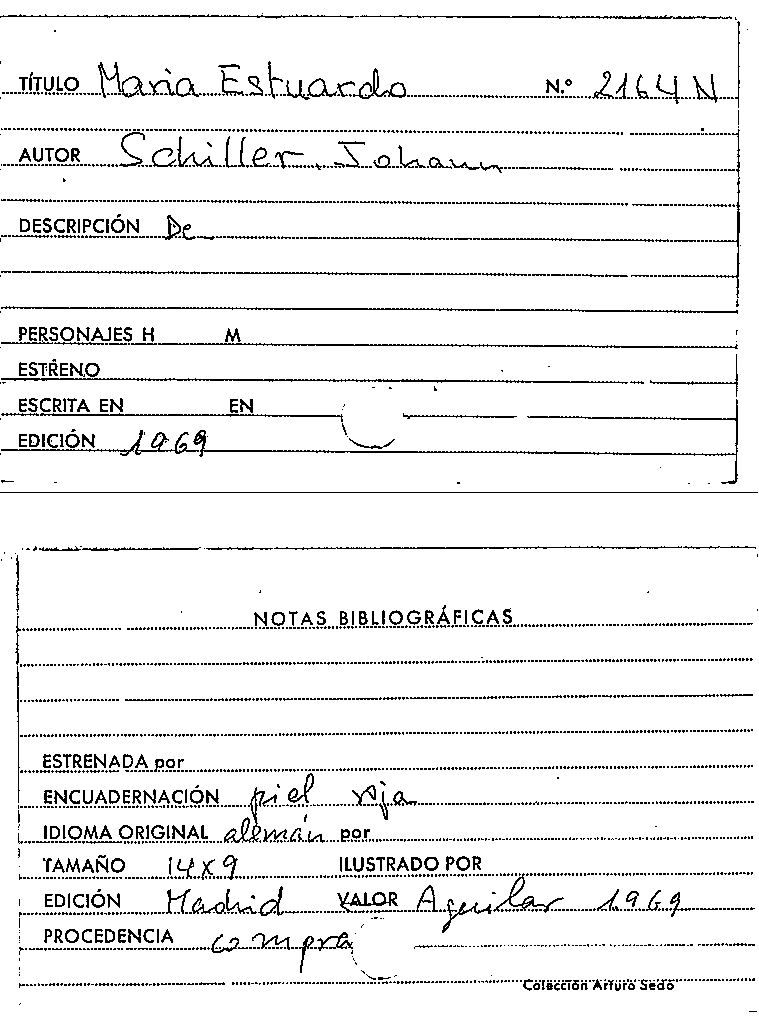 TÍTULO Maria Estuardo N.º 2164 N
AUTOR Schiller, Johann
DESCRIPCIÓN De
PERSONAJES H M
ESTRENO
ESCRITA EN EN
EDICIÓN 1969
NOTAS BIBLIOGRÁFICAS
ESTRENADA por
ENCUADERNACIÓN piel roja
IDIOMA ORIGINAL alemán por
TAMAÑO 14x9 ILUSTRADO POR
EDICIÓN Madrid VALOR Aguilar 1969
PROCEDENCIA compra
Colección Arturo Sedó